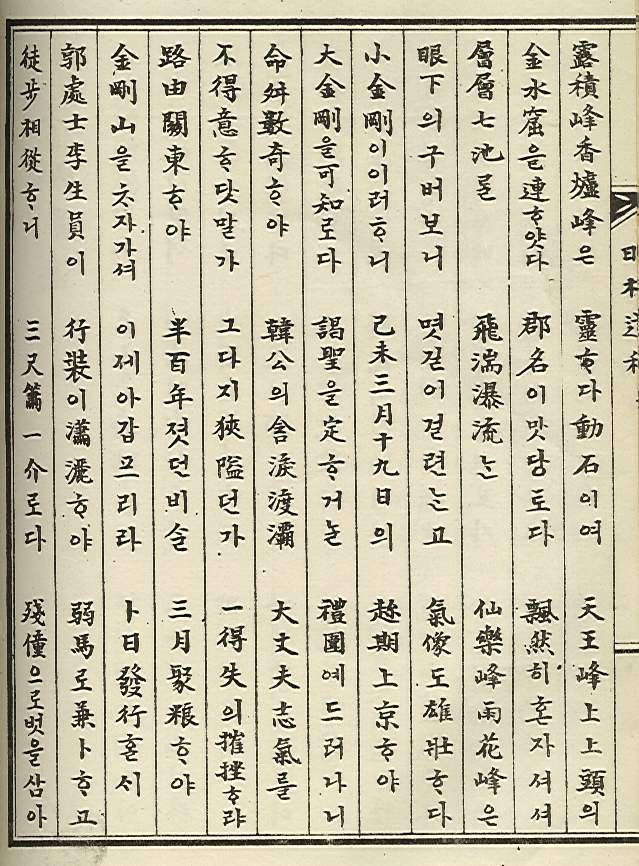 露積峰香爐峰은
金水窟을連ᄒᆞ얏다
靈ᄒᆞ다動石이여
郡名이맛당토다
天王峰上上頭의
飄然히혼자셔셔
層層七池ᄅᆞᆯ
眼下의구버보니
飛湍瀑流ᄂᆞᆫ
몃길이걸련ᄂᆞᆫ고
仙樂峰雨花峰은
氣像도雄壯ᄒᆞ다
小金剛이이러ᄒᆞ니
大金剛을可知로다
己未三月十九日의
謁聖을定ᄒᆞ거늘
趂期上京ᄒᆞ야
禮圍예드러가니
命舛數奇ᄒᆞ야
不得意ᄒᆞ닷말가
韓公의含淚渡灞
그다지狹隘던가
大丈夫志氣를
一得失의摧挫ᄒᆞ랴
路由關東ᄒᆞ야
金剛山을ᄎᆞ자가셔
半百年졋던비슬
이제아갑프리라
三月聚粮ᄒᆞ야
卜日發行ᄒᆞᆯ시
郭處士李生員이
徒步相從ᄒᆞ니
行裝이瀟灑ᄒᆞ야
三尺簫一介로다
弱馬로兼卜ᄒᆞ고
殘僮으로벗을삼아